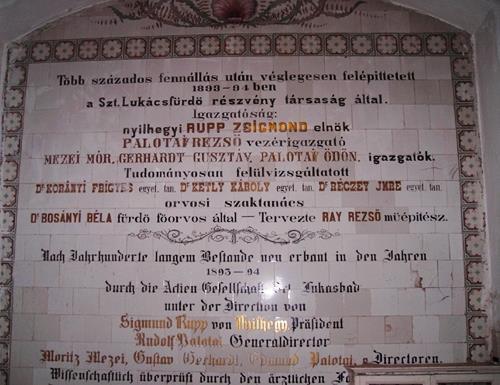 Több százados fennállás után véglegesen felépittetett
1893-94 ben
a Szt. Lukácsfürdő részvény társaság által.
Igazgatóság:
nyilhegyi RUPP ZSIGMOND elnök
PALOTAI REZSŐ vezérigazgató
MEZEI MÓR, GERHARDT GUSZTÁV, PALOTAI ÖDÖN, igazgatók.
Tudományosan felülvizsgáltatott
Dr KORÁNYI FRIGYES egyet. tan. Dr KETLY KÁROLY egyet. tan. Dr RÉCZEY JMRE egyet. tan.
orvosi szaktanács
Dr BOSÁNYI BÉLA fürdő főorvos által — Tervezte RAY REZSŐ műépitész.
Nach Jahrhunderte langem Bestande neu erbaut in den Jahren
1893-94
durch die Actien Gesellschaft Sct. Lukasbad
unter der Direction von
Sigmund Rupp von Nyilhegy, Präsident
Rudolf Palotai, Generaldirector
Moritz Mezei, Gustav Gerhardt, Edmund Palotai, Directoren.
Wissenschaftlich überprüft durch den ärztlichen